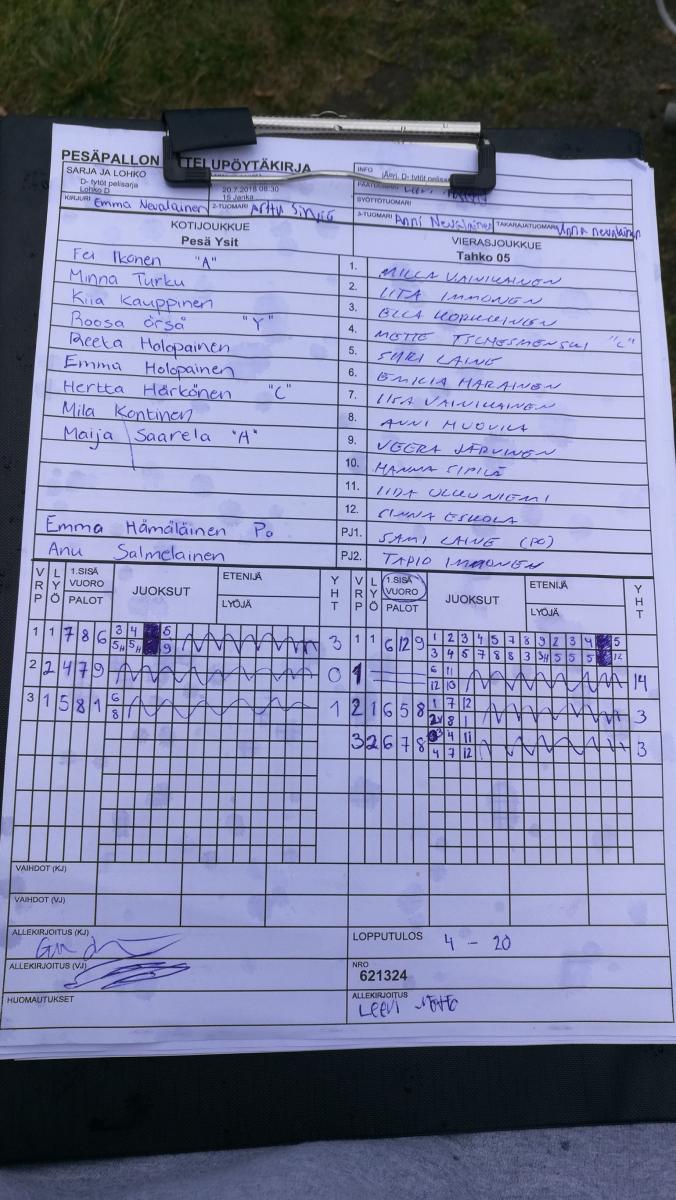 PESÄPALLON TTELUPÖYTÄKIRJA
SARJA JA LOHKO
D- tytöt pelisarja
Lohko D
20.7.2018 08:30
15 Janka
INFO
D- tytöt pelisarja
SYÖTTÖTUOMARI
KIRJURI Emma Nevalainen 2-TUOMARI 3-TUOMARI Anni Nevalainen TAKARAJATUOMARI nevalainen
KOTIJOUKKUE VIERASJOUKKUE
Pesä Ysit Tahko 05
Fei Ikonen "A" 1. MILLA VAINIKAINEN
Minna Turku 2. IITA IMMONEN
Kiia Kauppinen 3. ELLA
Roosa Örså "Y" 4. METTE "C"
Reeta Holopainen 5. SURI LAINE
Emma Holopainen 6. EMILIA
Hertta Härkönen "C" 7. IITA VAINIKAINEN
Mila Kontinen 8. ANNI
Maija Saarela "A" 9. VEERA JÄRVINEN
10. HANNA SIPILÄ
11. IIDA
12. ESKOLA
Emma Hämäläinen Po PJ1. SAMI LAINE (PO)
Anu Salmelainen PJ2. TAPIO IMMONEN
VRP LYÖ 1.SISÄ VUORO PALOT JUOKSUT ETENIJÄ LYÖJÄ YHT VRP LYÖ 1.SISÄ VUORO PALOT JUOKSUT ETENIJÄ LYÖJÄ YHT
1 1 7 8 6 3 4 5 3 1 1 6 12 9 1 2 3 4 5 7 8 9 2 3 4 5
9 3 4 5 7 8 8 3 5 5 12
2 2 4 7 9 0 1 6 11 14
12 10
3 1 5 8 1 6 1 2 1 6 5 8 1 7 12 3
8 8 1
3 2 6 7 8 4 11 3
4 7 12
VAIHDOT (KJ)
VAIHDOT (VJ)
ALLEKIRJOITUS (KJ) LOPPUTULOS 4 - 20
ALLEKIRJOITUS (VJ) NRO
621324
HUOMAUTUKSET ALLEKIRJOITUS
Leevi